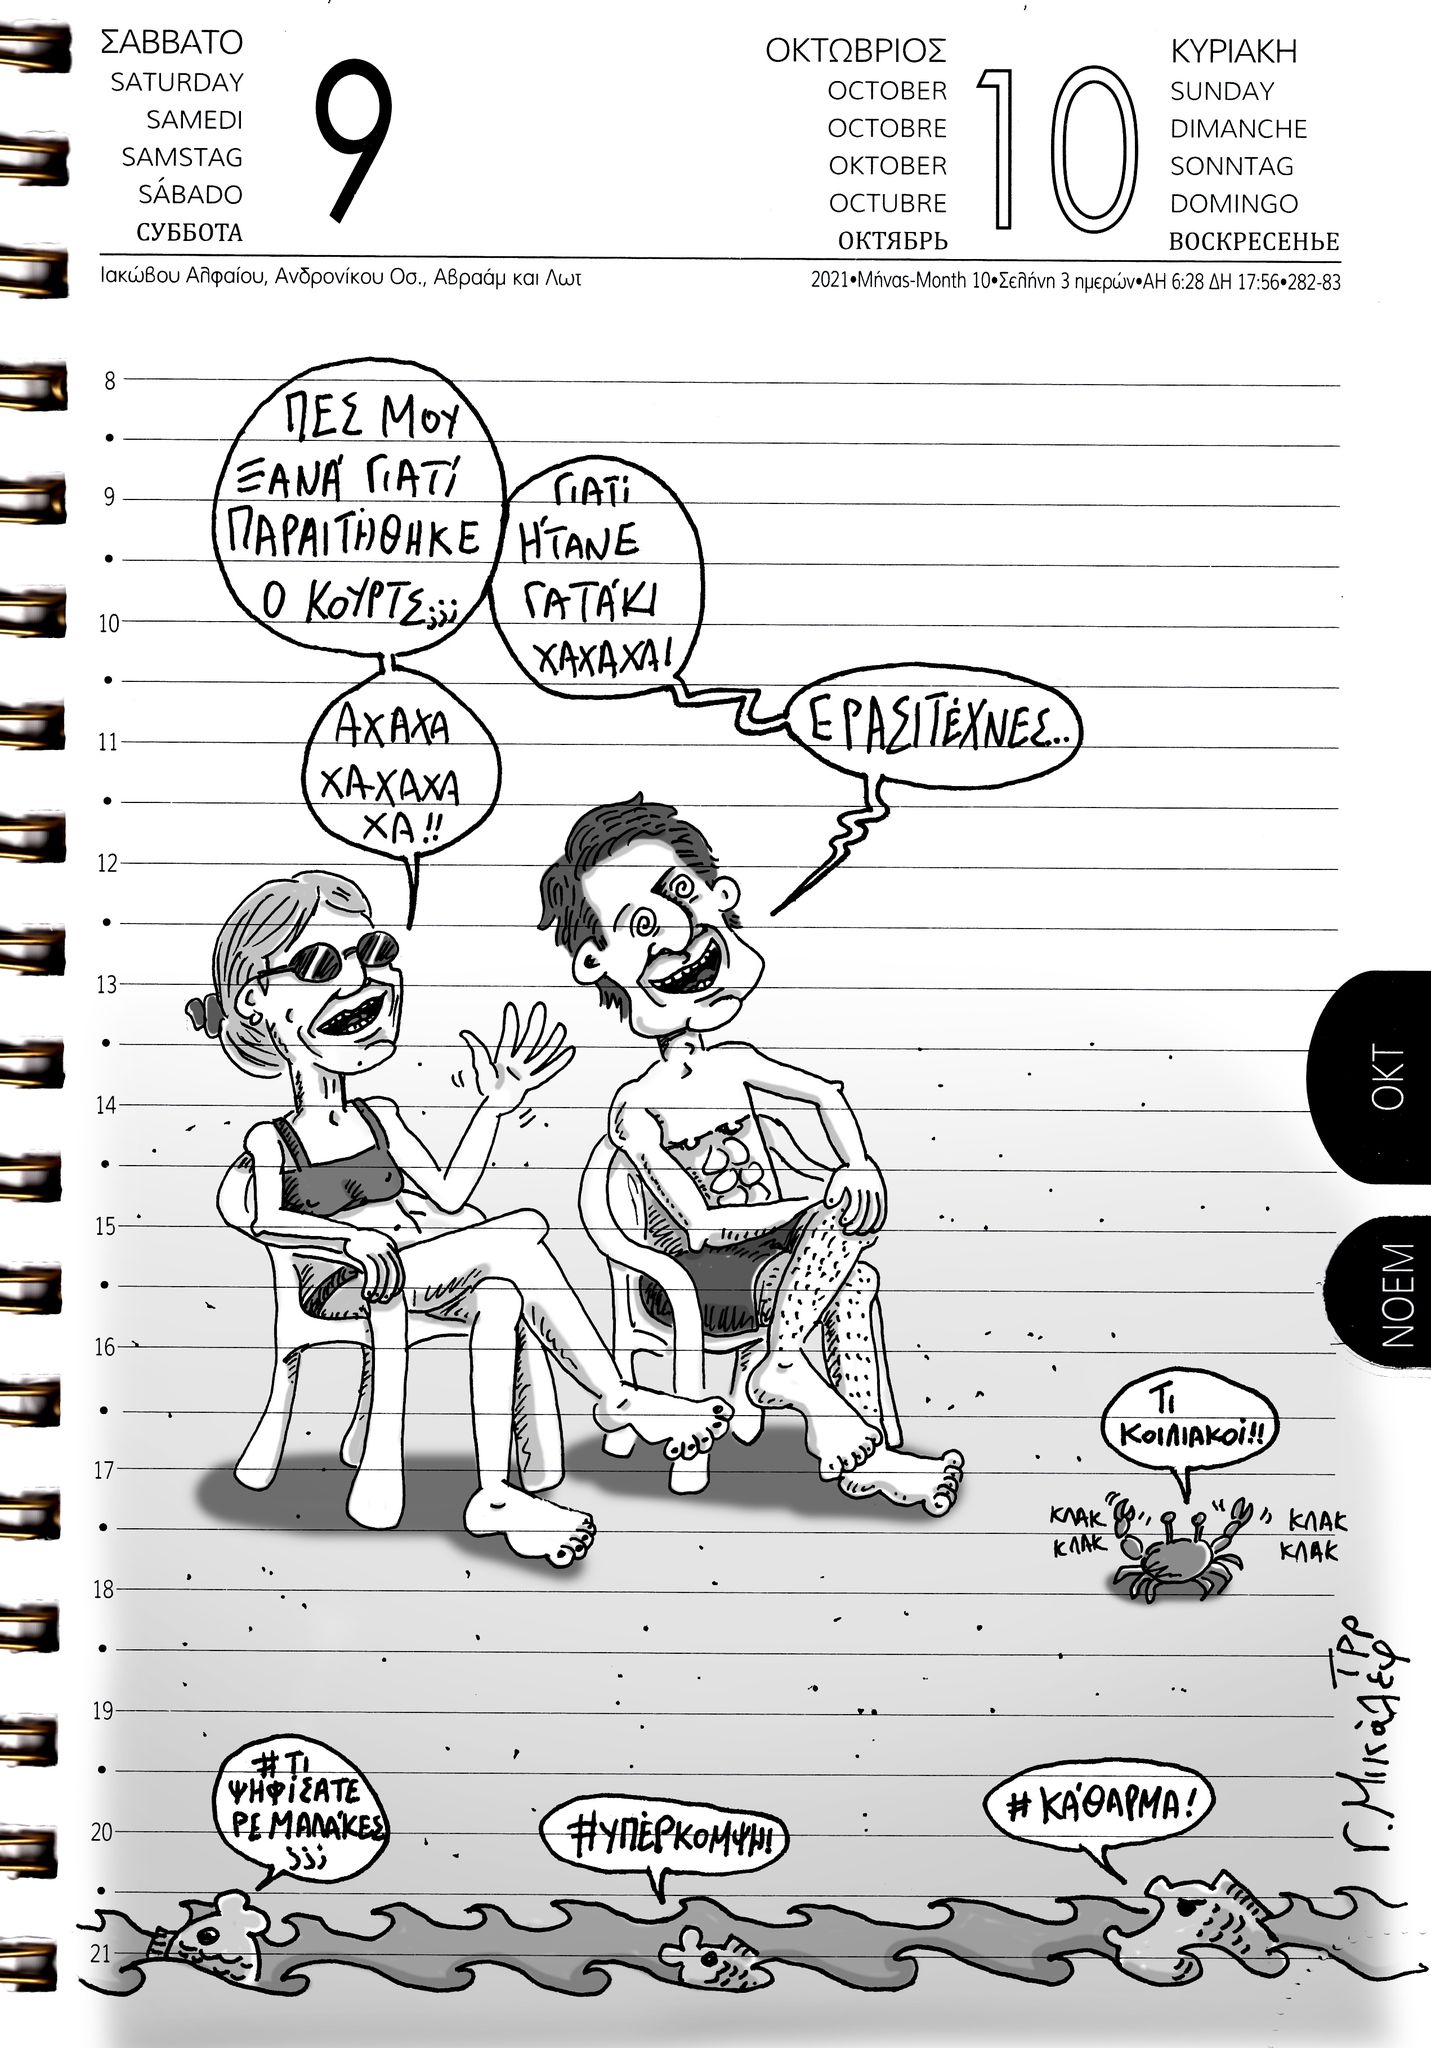 ΣΑΒΒΑΤΟ
SATURDAY
SAMEDI
SAMSTAG
SÁBADO
СУББОТА
9
ΟΚΤΩΒΡΙΟΣ
OCTOBER
OCTOBRE
OKTOBER
OCTUBRE
ОКТЯБРЬ
10
ΚΥΡΙΑΚΗ
SUNDAY
DIMANCHE
SONNTAG
DOMINGO
ВОСКРЕСЕНЬЕ
Ιακώβου Αλφαίου, Ανδρονίκου Οσ., Αβραάμ και Λωτ
2021•Μήνας-Month 10•Σελήνη 3 ημερών•ΑΗ 6:28 ΔΗ 17:56•282-83
ΠΕΣ ΜΟΥ
ΞΑΝΆ ΓΙΑΤΊ
ΠΑΡΑΙΤΉΘΗΚΕ
Ο ΚΟΥΡΤΣ;;;
ΓΙΑΤΊ
ΉΤΑΝΕ
ΓΑΤΆΚΙ
ΧΑΧΑΧΑ!
ΑΧΑΧΑ
ΧΑΧΑΧΑ
ΧΑ!!
ΕΡΑΣΙΤΈΧΝΕΣ...
8
9
10
11
12
13
14
15
16
17
18
19
20
21
ΟΚΤ
ΝΟΕΜ
ΤΙ
ΚΟΙΛΙΑΚΟΊ!!
ΚΛΑΚ
ΚΛΑΚ
ΚΛΑΚ
ΚΛΑΚ
#ΤΙ
ΨΗΦΊΣΑΤΕ
ΡΕ ΜΑΛΆΚΕΣ
;;;
#ΥΠΈΡΚΟΜΨΗ!
#ΚΆΘΑΡΜΑ!
Γ. Μικάλεφ
ΤΡΡ